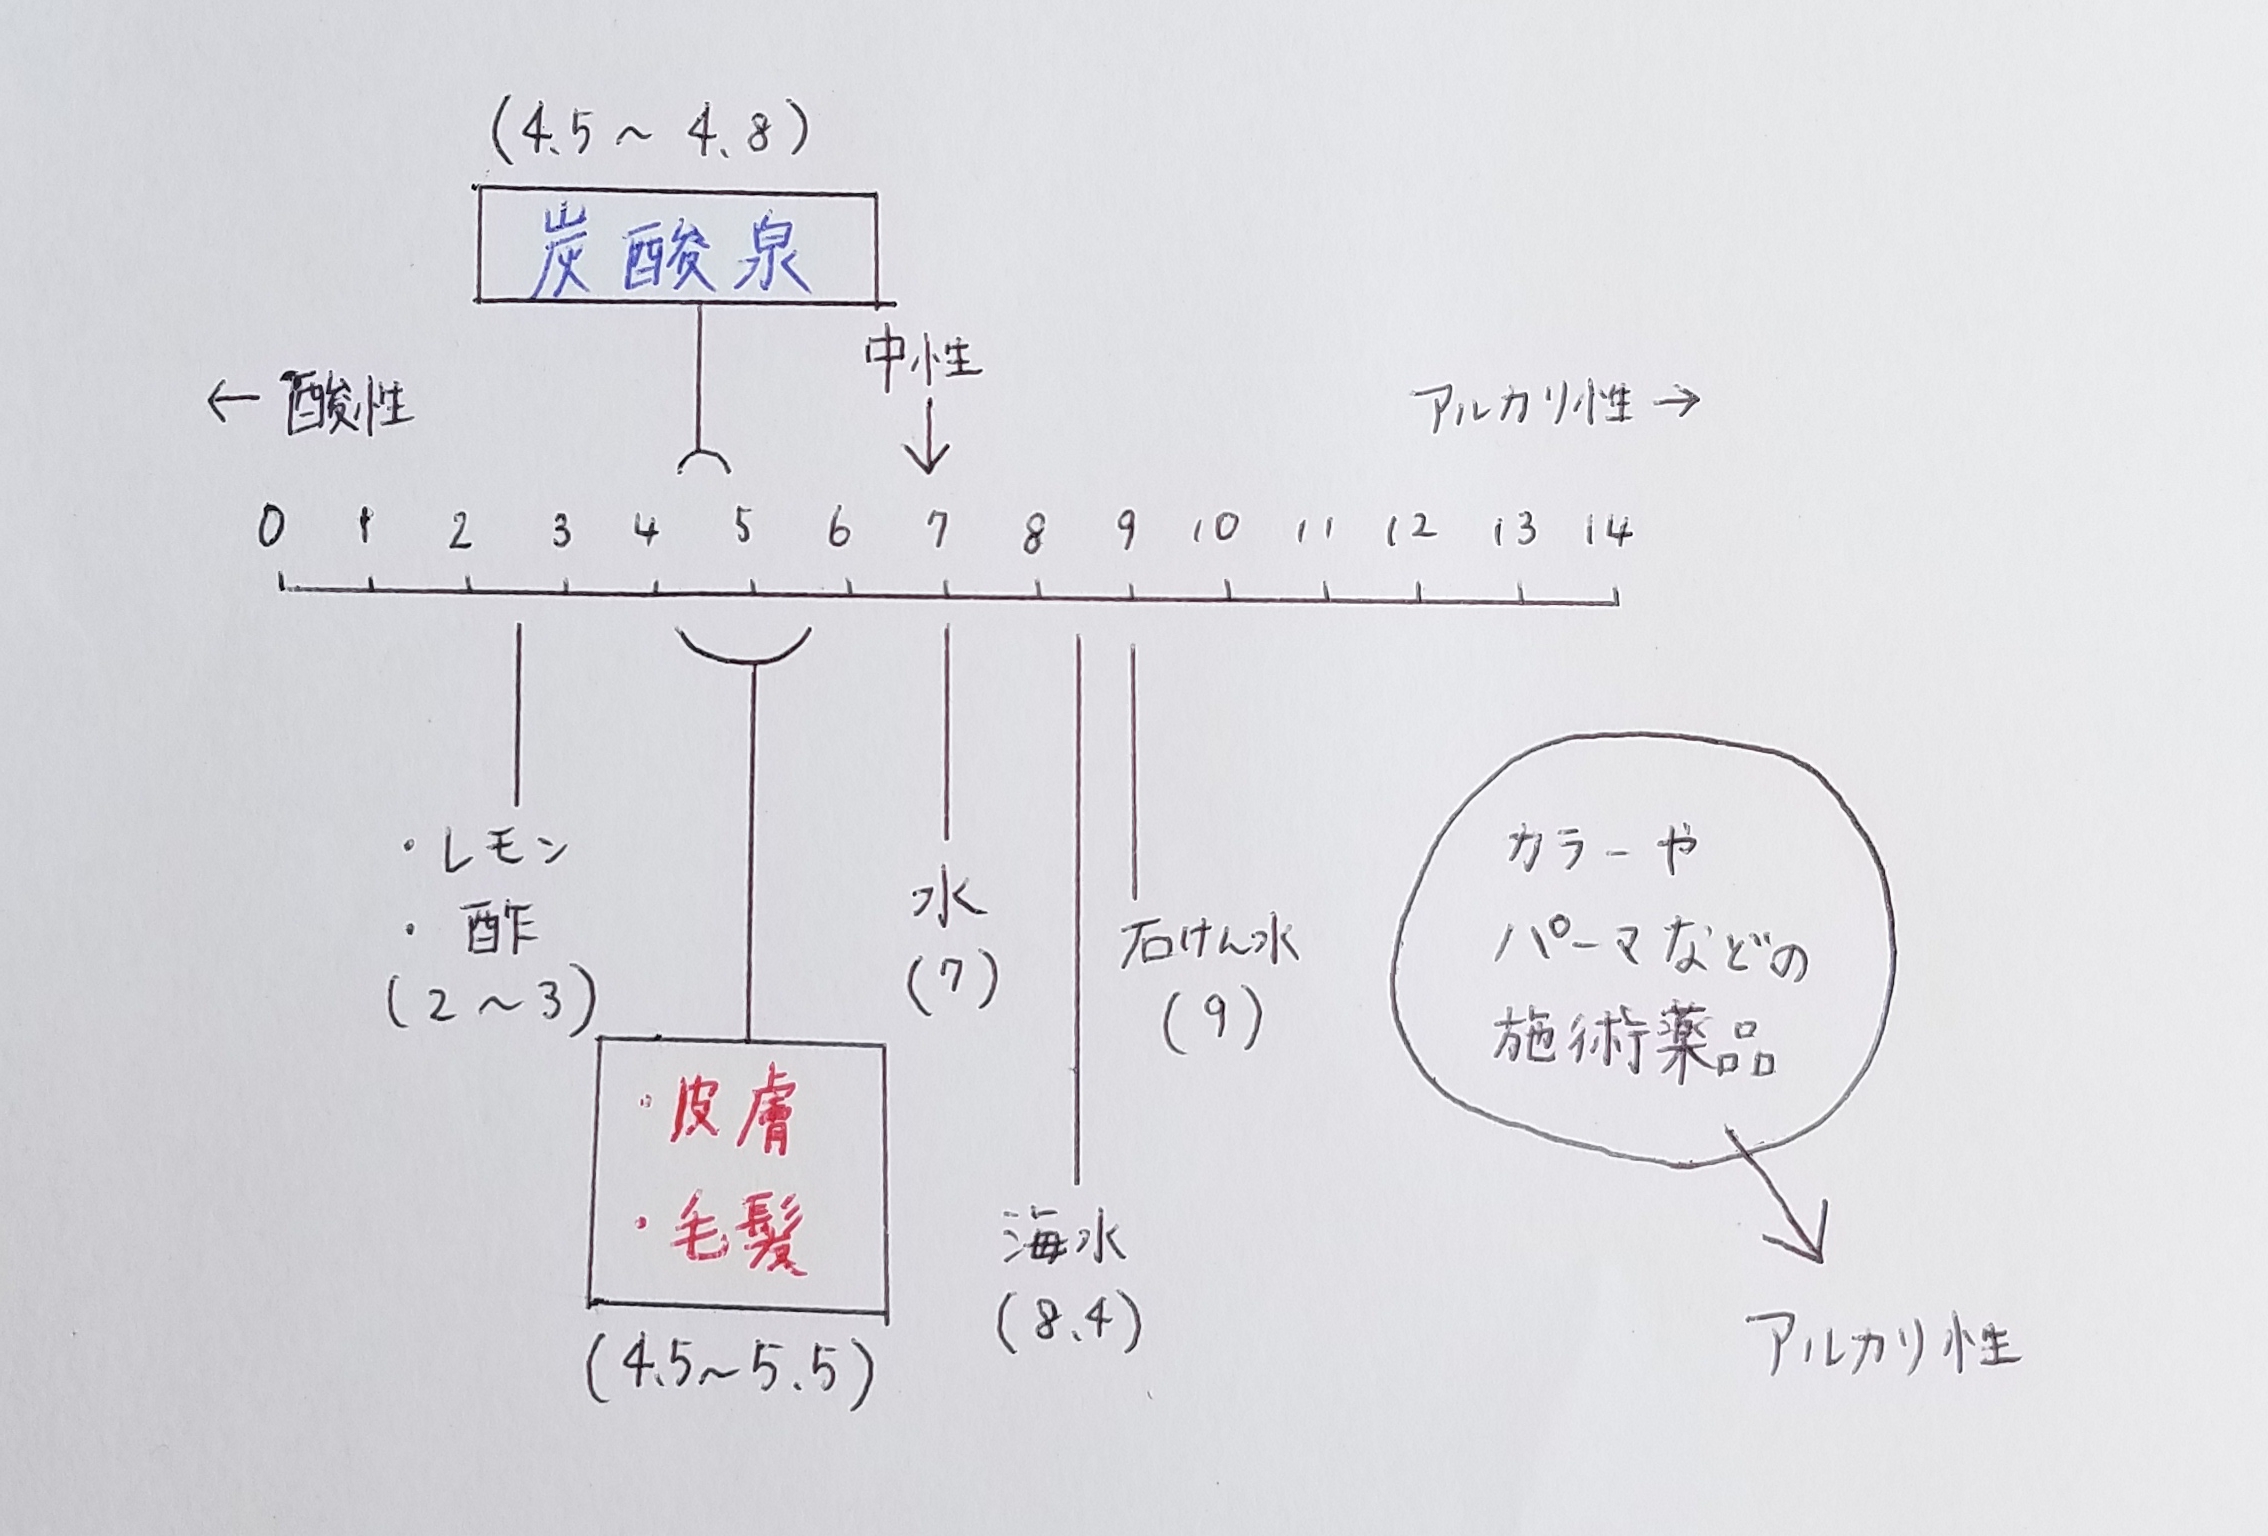 (4.5～4.8)
炭酸泉
中性
← 酸性
アルカリ性 →
0 1 2 3 4 5 6 7 8 9 10 11 12 13 14
・レモン
・酢
(2～3)
・皮膚
・毛髪
(4.5～5.5)
水
(7)
海水
(8.4)
石けん水
(9)
カラーや
パーマなどの
施術薬品
アルカリ性